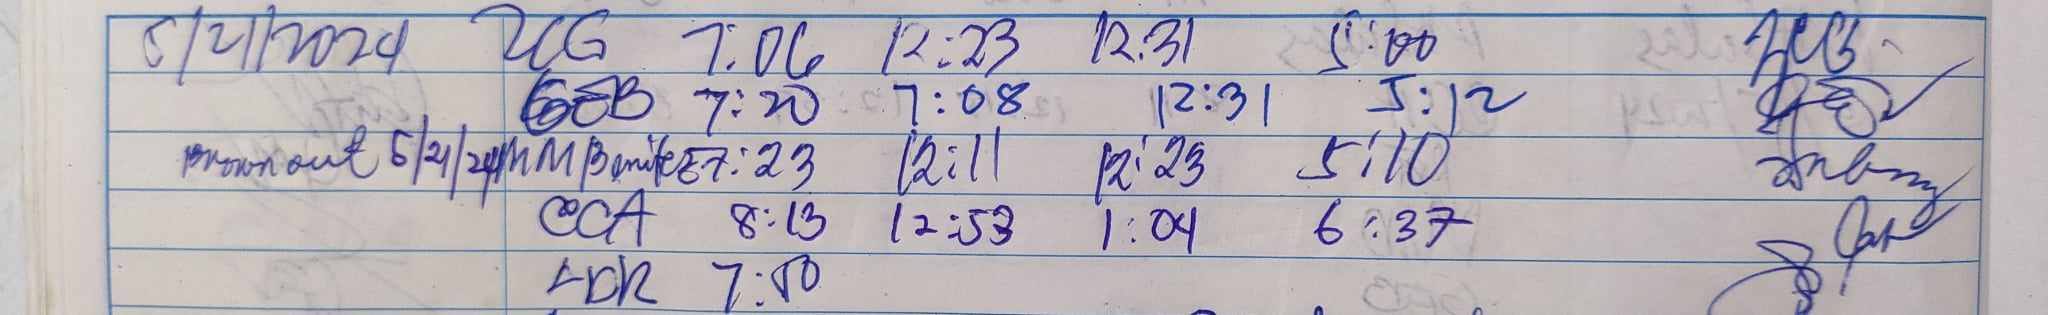 5/21/2024 JCG 7:06 12:23 12:31 5:00 JCG
GEB 7:20 7:08 12:31 5:12
Brown out 5/21/24 MM Benitez 7:23 12:11 12:23 5:10
CCA 8:13 12:53 1:04 6:37
LDR 7:50